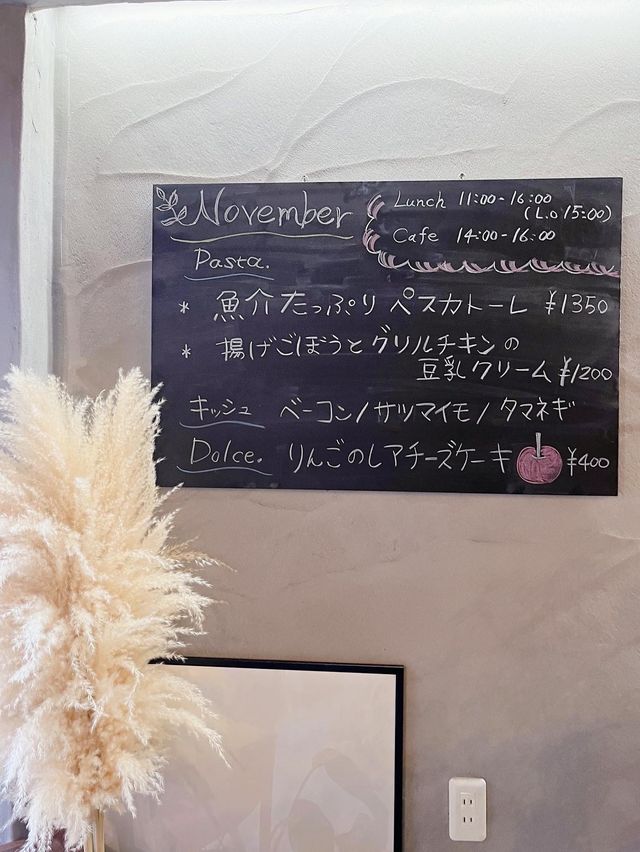 November
Lunch 11:00-16:00
(L.o 15:00)
Cafe 14:00-16:00
Pasta.
* 魚介たっぷりペスカトーレ ¥1350
* 揚げごぼうとグリルチキンの
豆乳クリーム ¥1200
キッシュ ベーコン/サツマイモ/タマネギ
Dolce. りんごのレアチーズケーキ ¥400